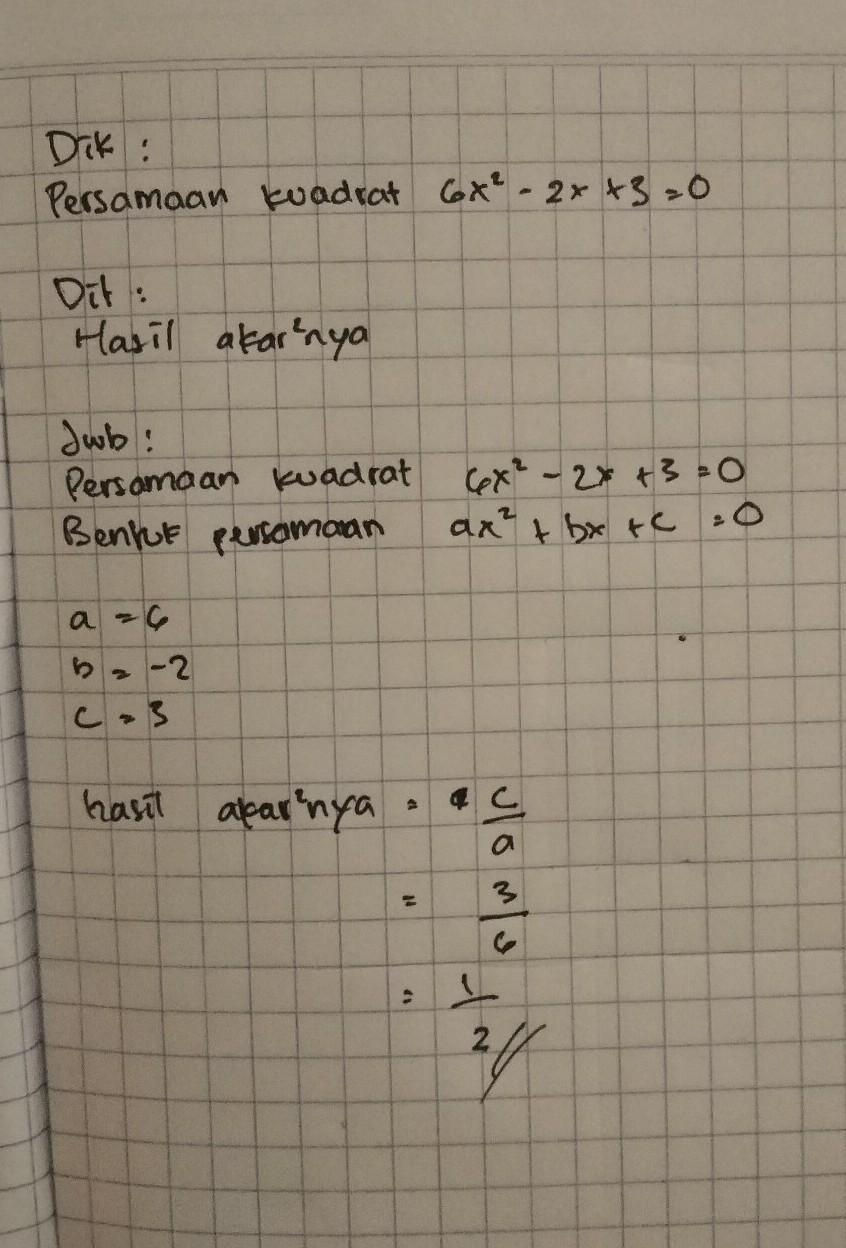 Dik :
Persamaan kuadrat 6x² - 2x + 3 = 0
Dit :
Hasil akar²nya
Jwb :
Persamaan kuadrat 6x² - 2x + 3 = 0
Bentuk persamaan ax² + bx + c = 0
a = 6
b = -2
c = 3
hasil akar²nya = c/a
= 3/6
= 1/2 //